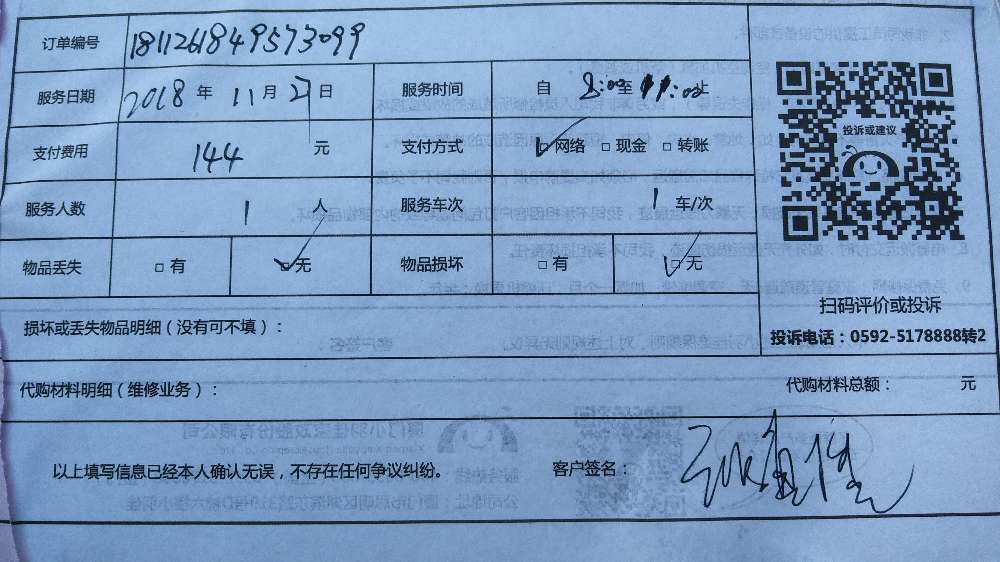 订单编号 1811261849573099
服务日期 2018 年 11 月 27 日 服务时间 自 8:00 至 11:00 止
支付费用 144 元 支付方式 ☑网络 □现金 □转账
服务人数 1 人 服务车次 1 车/次
物品丢失 □有 ☑无 物品损坏 □有 ☑无
投诉或建议
扫码评价或投诉
投诉电话：0592-5178888转2
损坏或丢失物品明细（没有可不填）：
代购材料明细（维修业务）： 代购材料总额： 元
以上填写信息已经本人确认无误，不存在任何争议纠纷。 客户签名：